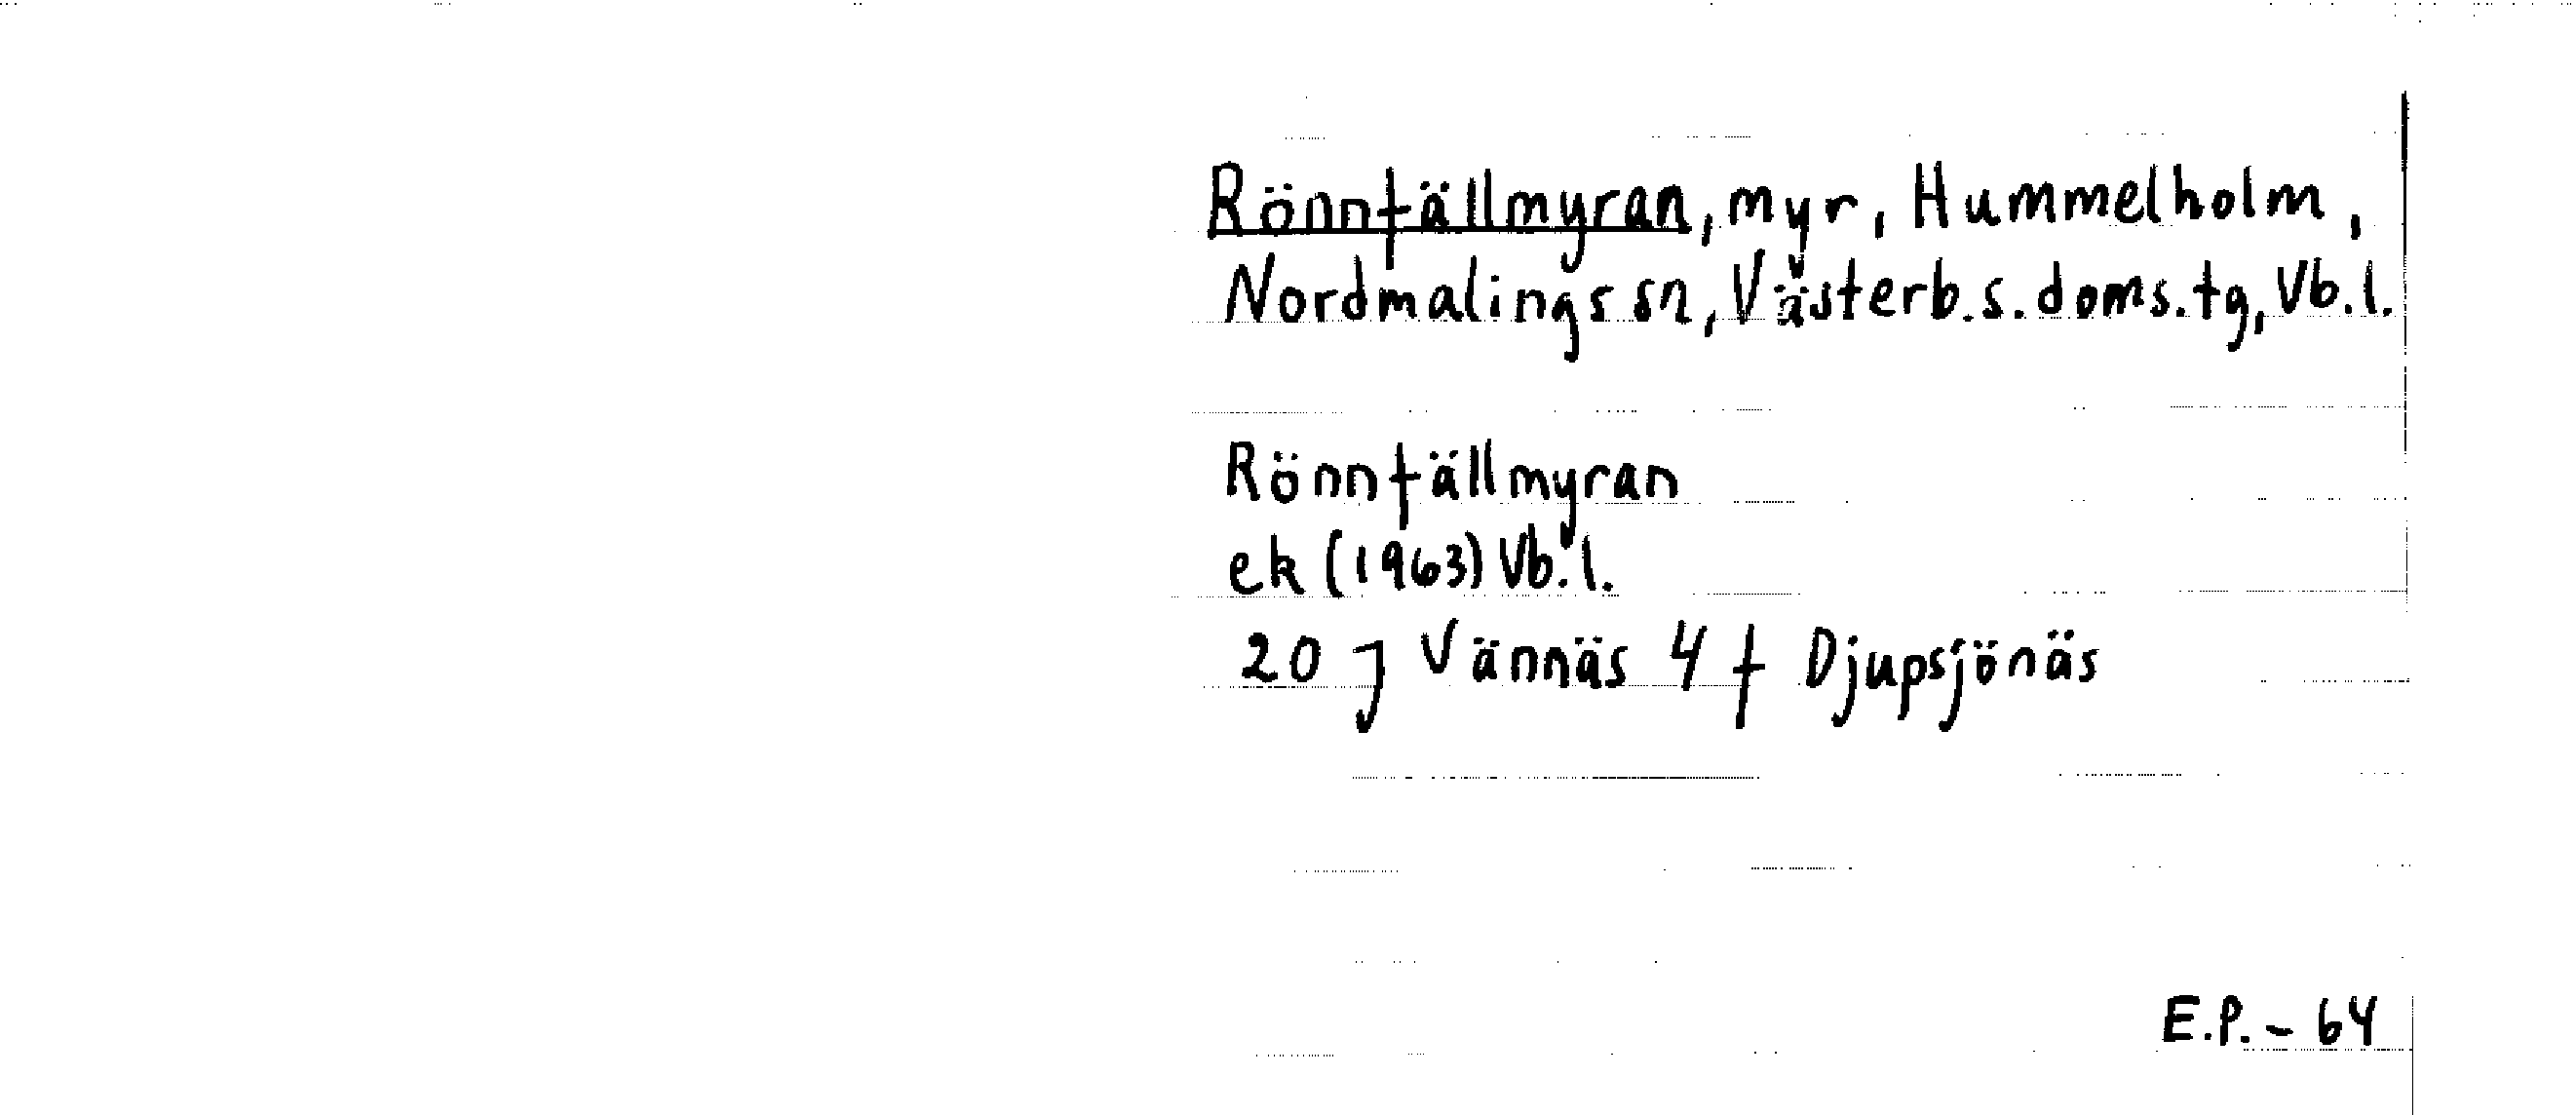 Rönnfällmyran, myr, Hummelholm,
Nordmalings sn, Västerb.s.doms.tg, Vb.l.
Rönnfällmyran
ek (1963) Vb.l.
20 J Vännäs 4 f Djupsjönäs
E.P. - 64